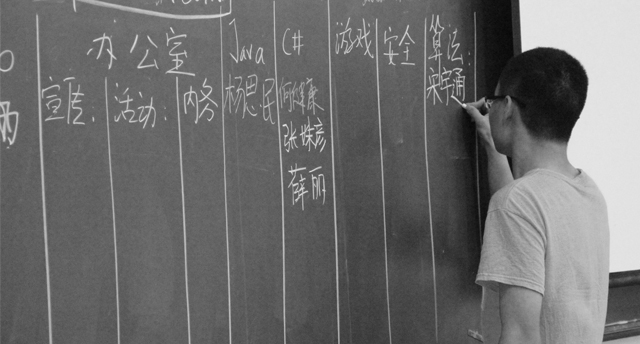 办公室
宣传. 活动: 内务
Java
杨思民
C#
何健康
张姝彦
薛丽
游戏
安全
算法:
宋宇通